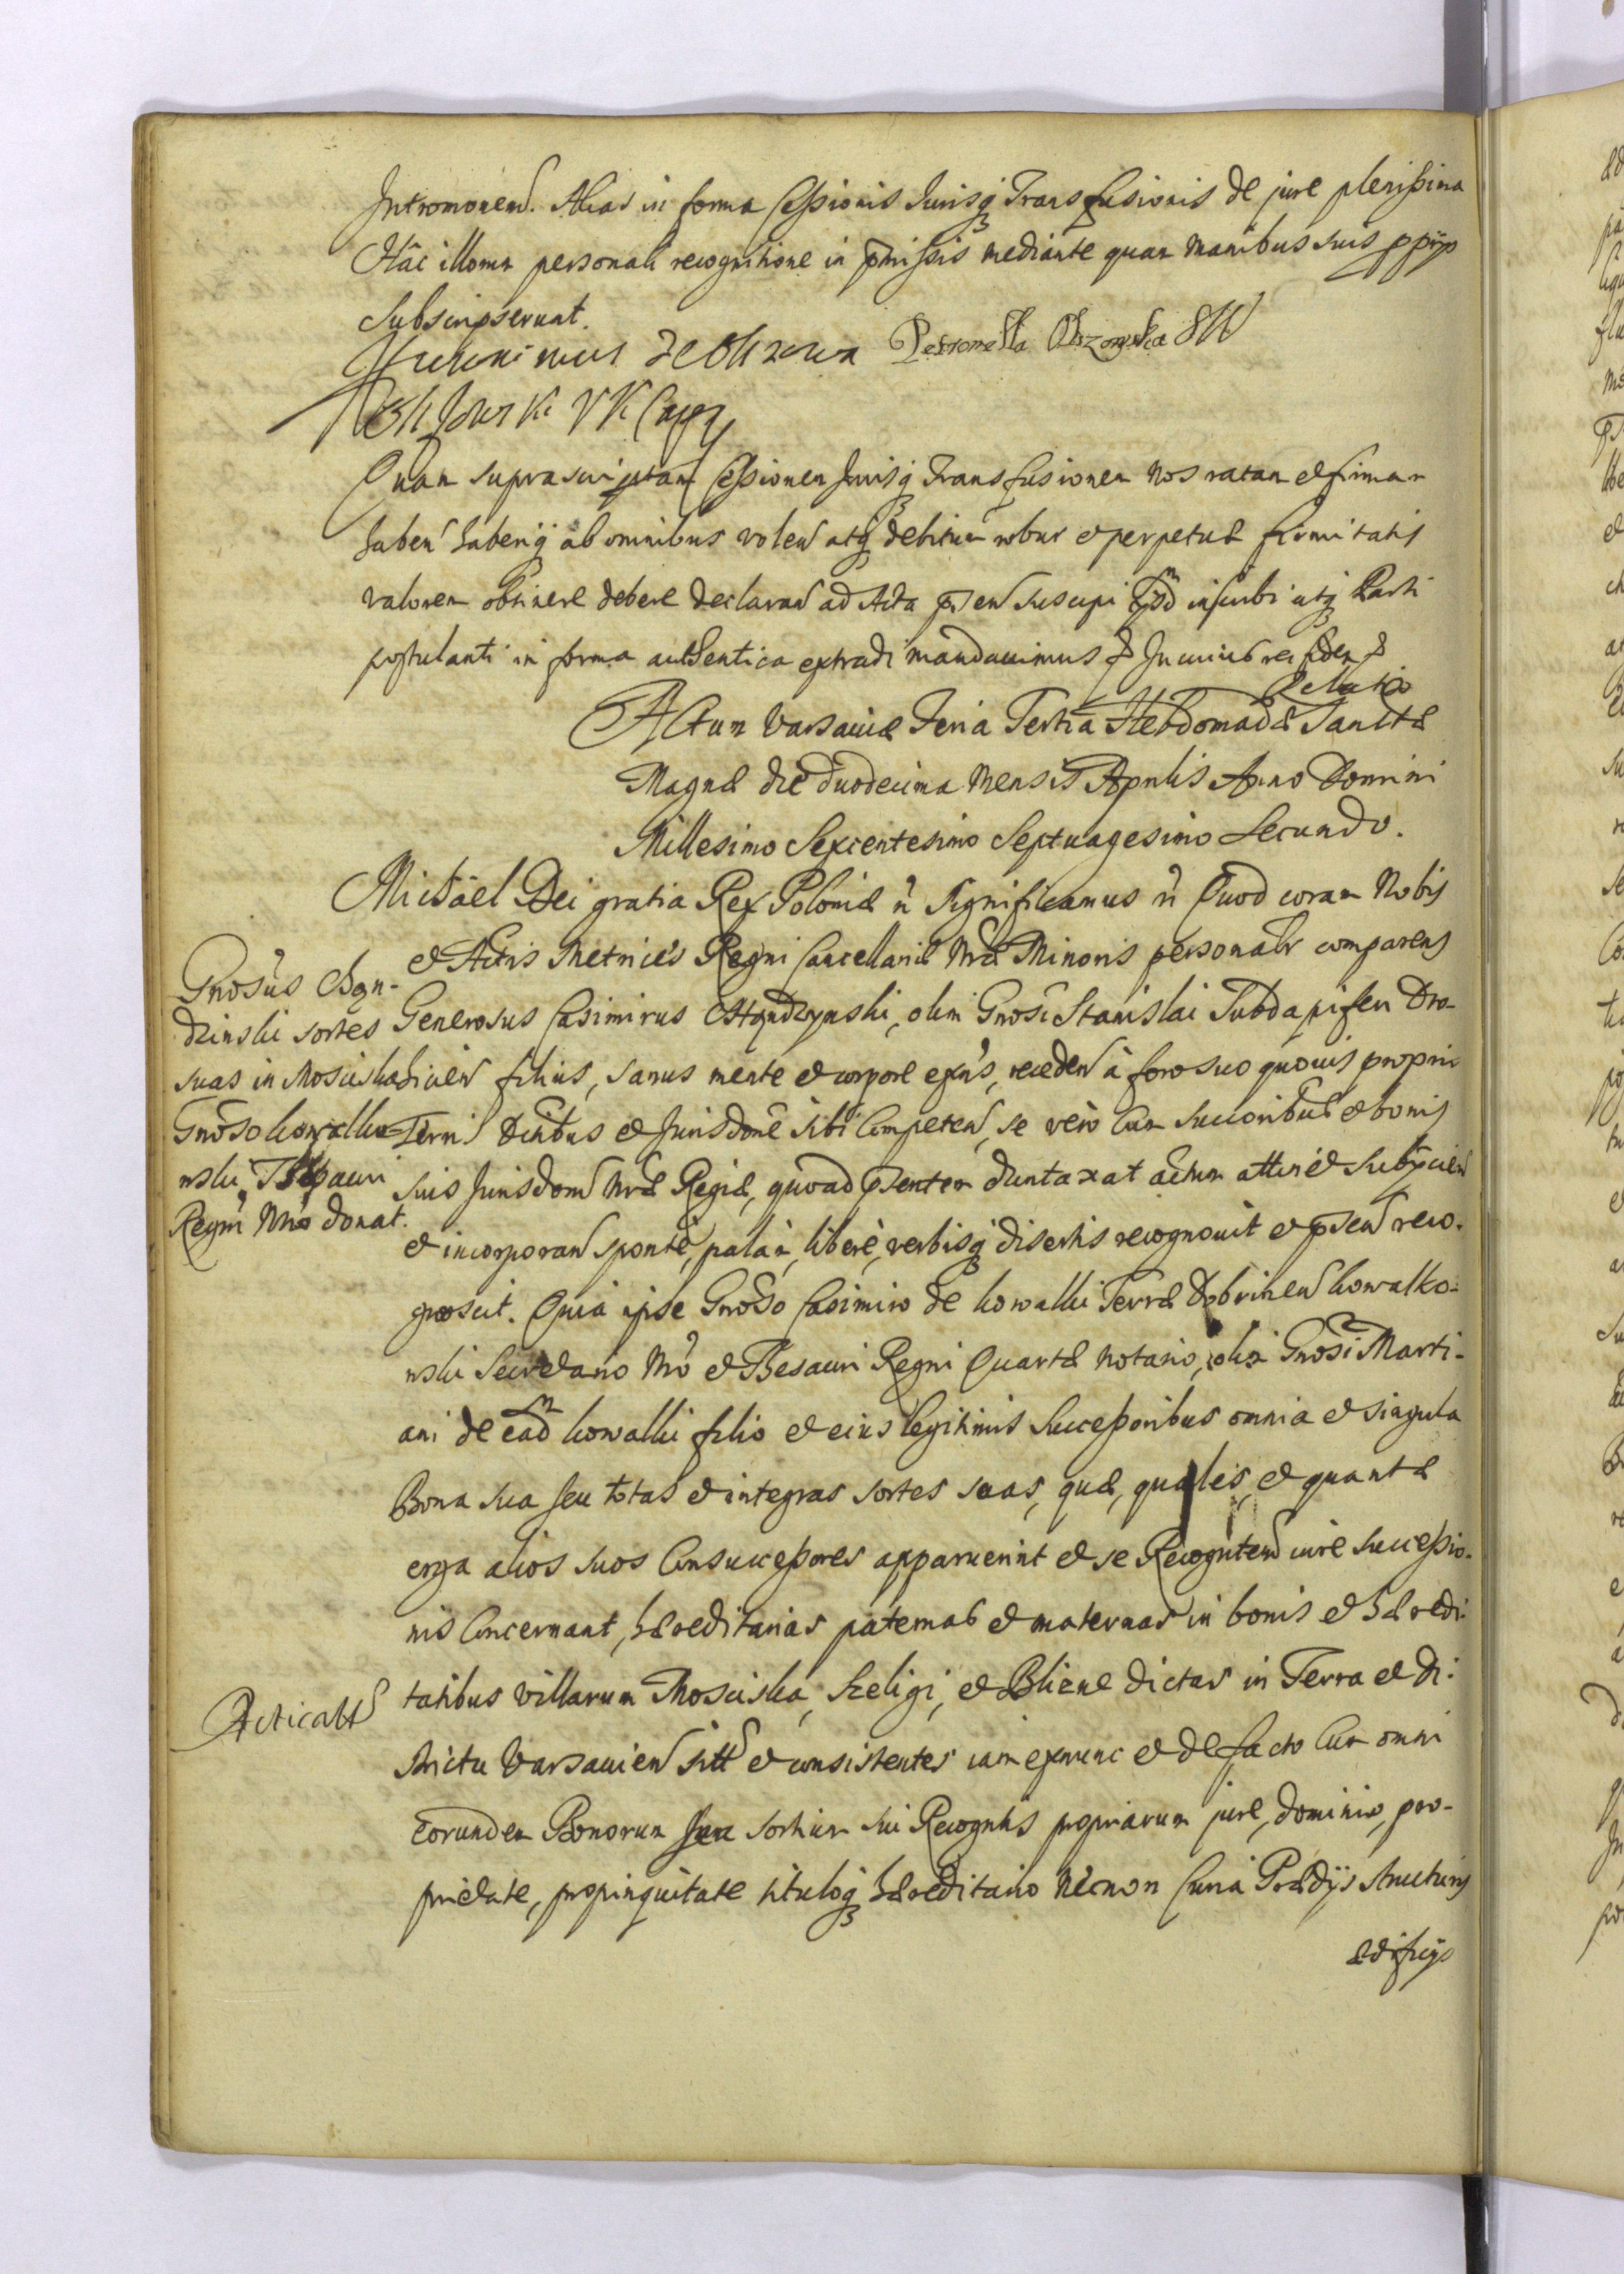 Intromonen. Alias in forma Cessionis Jurisq Transfusionis de jure plenissima
Hac illorum personali recognitione in pmissis mediante quam manibus suis ppijs
subscripserunt.
Petronella Olszowska
Quam suprascriptam Cessionem Jurisq Transfusionem Nos ratam et firmam
haben haberiq ab omnibus volen atq debitum robur et perpetuæ firmitatis
valorem obtinere debere declaran ad Acta psen suscipi ijsd inscribi atq Parti
postulanti in forma authentica extradi mandavimus In cuius rei fidem
Relatio
Actum Varsaviæ Feria Tertia Hebdomadæ Sanctæ
Magnæ die duodecima Mensis Aprilis Anno Domini
Millesimo Sexcentesimo Septuagesimo Secundo.
Michael Dei gratia Rex Poloniæ Significamus Quod coram Nobis
et Actis Metrices Regni Cancellariæ Nræ Minoris personalr comparens
Generosus Casimirus olim Gnosi Stanislai Subdapiferi Dro-
hicien filius, sanus mente et corpore exns, receden à foro suo quovis proprio
Terris Dtibus et Jurisdone sibi Competen, se vero cum succoribus et bonis
suis Jurisdoni Nræ Regiæ, quoad psentem duntaxat actum attinet subijcien
et incorporan sponte, palam, libere, verbisq disertis recognovit et psen reco-
gnoscit. Quia ipse Gnoso Casimiro de Kowalki Terræ Dobrinen Kowalko-
wski Secretario Nro et Thesauri Regni Quartæ Notario, olim Gnosi Marti-
ani de ead Kowalki filio et eius legitimis Successoribus omnia et singula
Bona sua seu totas et integras sortes suas, quæ, quales, et quantæ
erga alios suos Consuccessores apparuerint et se Recognten iure successio-
nis Concernant, hæreditarias paternas et maternas in bonis et hæredi-
tatibus villarum Mosciska, Szeligi, et Blizne dictas in Terra et Di-
strictu Varsavien sitt et consistentes iam exnunc et de facto Cum omni
eorundem Bonorum seu sortium sui Recogntis propriarum jure, dominio, pro-
prietate, propinquitate tituloq hæreditario Necnon Curia Prædijs structuris
ædificijs
Gnosus
sortes
suas in Mosciska
Gnoso Kowalko
wski Thesauri
Regni Nro donat.
Acticatt